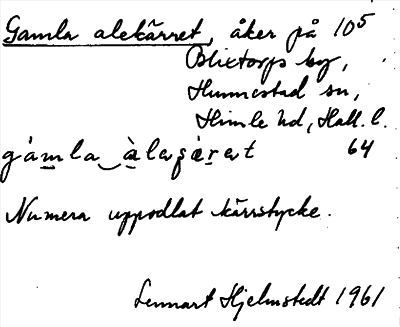 Gamla alekärret, åker på 10⁵
Blixtorps by,
Hunnestad sn,
Himle hd, Hall. l.
gàmla‿àlaɕæ̀rat 64
Numera uppodlat kärrstycke.
Lennart Hjelmstedt 1961